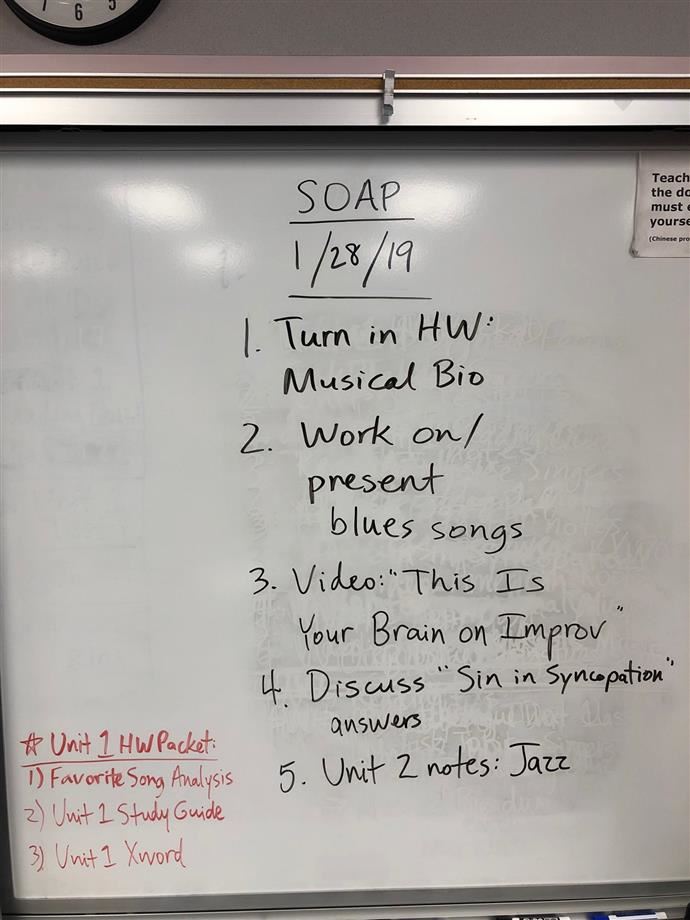 7 6 5
SOAP
1/28/19
Teach
the do
must e
yourse
(Chinese pro
1. Turn in HW:
Musical Bio
2. Work on/
present
blues songs
3. Video: "This Is
Your Brain on Improv"
4. Discuss "Sin in Syncopation"
answers
5. Unit 2 notes: Jazz
☆ Unit 1 HW Packet:
1) Favorite Song Analysis
2) Unit 1 Study Guide
3) Unit 1 Xword